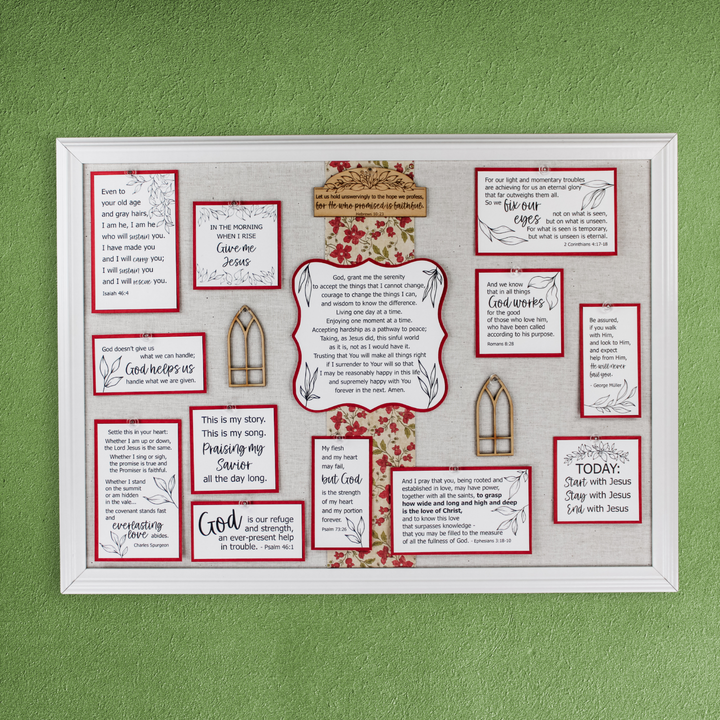 Even to
your old age
and gray hairs,
I am he, I am he
who will sustain you.
I have made you
and I will carry you;
I will sustain you
and I will rescue you.
Isaiah 46:4
IN THE MORNING
WHEN I RISE
Give me
Jesus
Let us hold unswervingly to the hope we profess,
for He who promised is faithful.
Hebrews 10:23
For our light and momentary troubles
are achieving for us an eternal glory
that far outweighs them all.
So we fix our
eyes not on what is seen,
but on what is unseen.
For what is seen is temporary,
but what is unseen is eternal.
2 Corinthians 4:17-18
God, grant me the serenity
to accept the things that I cannot change,
courage to change the things I can,
and wisdom to know the difference.
Living one day at a time.
Enjoying one moment at a time.
Accepting hardship as a pathway to peace;
Taking, as Jesus did, this sinful world
as it is, not as I would have it.
Trusting that You will make all things right
if I surrender to Your will so that
I may be reasonably happy in this life
and supremely happy with You
forever in the next. Amen.
And we know
that in all things
God works
for the good
of those who love him,
who have been called
according to his purpose.
Romans 8:28
Be assured,
if you walk
with Him,
and look to Him,
and expect
help from Him,
He will never
fail you.
- George Müller
God doesn't give us
what we can handle;
God helps us
handle what we are given.
Settle this in your heart:
Whether I am up or down,
the Lord Jesus is the same.
Whether I sing or sigh,
the promise is true and
the Promiser is faithful.
Whether I stand
on the summit
or am hidden
in the vale...
the covenant stands fast
and
everlasting
love abides.
Charles Spurgeon
This is my story.
This is my song.
Praising my
Savior
all the day long.
God is our refuge
and strength,
an ever-present help
in trouble. - Psalm 46:1
My flesh
and my heart
may fail,
but God
is the strength
of my heart
and my portion
forever.
Psalm 73:26
And I pray that you, being rooted and
established in love, may have power,
together with all the saints, to grasp
how wide and long and high and deep
is the love of Christ,
and to know this love
that surpasses knowledge -
that you may be filled to the measure
of all the fullness of God. - Ephesians 3:18-10
TODAY:
Start with Jesus
Stay with Jesus
End with Jesus